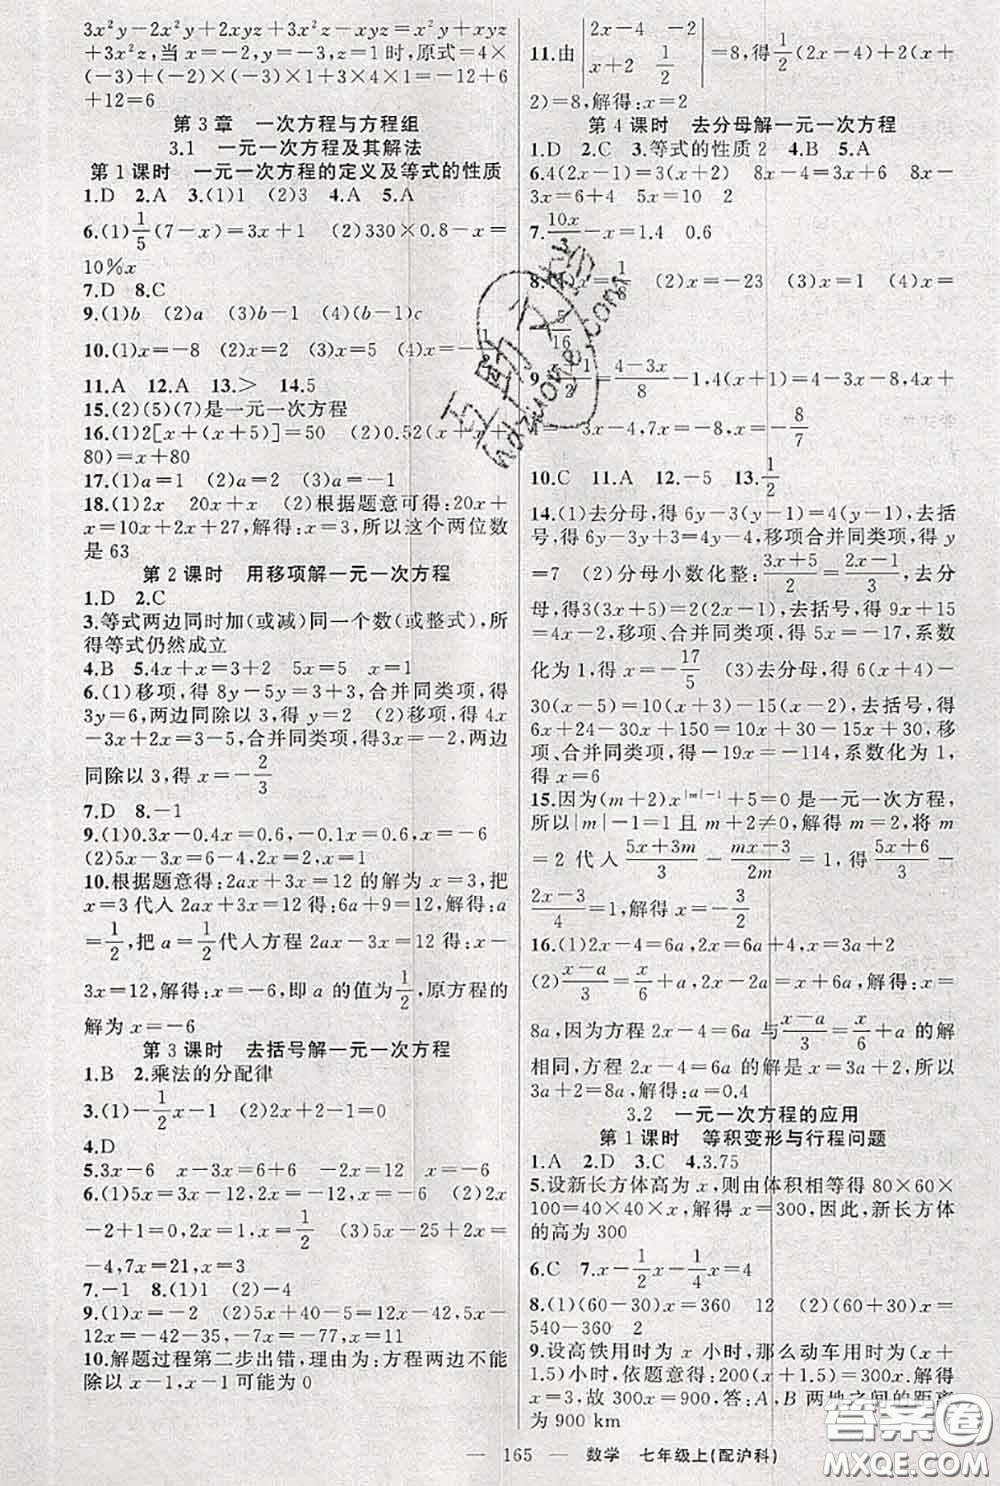 3x²y－2x²y＋2xyz＋3x²z－xyz＝x²y＋xyz
＋3x²z,当 x＝－2,y＝－3,z＝1 时,原式＝4×
(－3)＋(－2)×(－3)×1＋3×4×1＝－12＋6
＋12＝6
第 3 章　一次方程与方程组
3.1　一元一次方程及其解法
第 1 课时　一元一次方程的定义及等式的性质
1.D　2.A　3.(1)1　(2)3　4.A　5.A
6.(1)1/5(7－x)＝3x＋1　(2)330×0.8－x＝
10%x
7.D　8.C
9.(1)b　(2)a　(3)－1　(4)(b－1)c
10.(1)x＝－8　(2)x＝2　(3)x＝5　(4)x＝－
11.A　12.A　13.＞　14.5
15.(2)(5)(7)是一元一次方程
16.(1)2[x＋(x＋5)]＝50　(2)0.52(x＋x＋
80)＝x＋80
17.(1)a＝1　(2)a＝2　(3)a＝－1
18.(1)2x　20x＋x　(2)根据题意可得:20x＋
x＝10x＋2x＋27,解得:x＝3,所以这个两位数
是 63
第 2 课时　用移项解一元一次方程
1.D　2.C
3.等式两边同时加(或减)同一个数(或整式),所
得等式仍然成立
4.B　5.4x＋x＝3＋2　5x＝5　x＝1
6.(1)移项,得 8y－5y＝3＋3,合并同类项,得
3y＝6,两边同除以 3,得 y＝2　(2)移项,得 4x
－3x＋2x＝3－5,合并同类项,得 3x＝－2,两边
同除以 3,得 x＝－2/3
7.D　8.－1
9.(1)0.3x－0.4x＝0.6,－0.1x＝0.6,x＝－6
(2)5x－3x＝6－4,2x＝2,x＝1
10.根据题意得:2ax＋3x＝12 的解为 x＝3,把
x＝3 代入 2ax＋3x＝12 得:6a＋9＝12,解得:a
＝1/2,把 a＝1/2代入方程 2ax－3x＝12 得:x－
3x＝12,解得:x＝－6,即 a 的值为1/2,原方程的
解为 x＝－6
第 3 课时　去括号解一元一次方程
1.B　2.乘法的分配律
3.(1)－1/2x－1　(2)2x＋2－1＝0
4.D
5.3x－6　x－3x＝6＋6　－2x＝12　x＝－6
6.(1)5x－15＝0,5x＝15,x＝3　(2)2x
－2＋1＝0,2x＝1,x＝1/2　(3)5x－25＋2x＝
－4,7x＝21,x＝3
7.－1　8.(1)1　(2)－4
9.(1)x＝－2　(2)5x＋40－5＝12x－42,5x－
12x＝－42－35,－7x＝－77,x＝11
10.解题过程第二步出错,理由为:方程两边不能
除以 x－1,x－1 可能为 0
11.由|2x－4　－2　x＋2　1/2|＝8,得1/2(2x－4)＋2(x＋
2)＝8,解得:x＝2
第 4 课时　去分母解一元一次方程
1.D　2.C　3.等式的性质 2　4.B　5.A
6.4(2x－1)＝3(x＋2)　8x－4＝3x＋6　8x－
3x＝6＋4　5x＝10　2
7.10x/3－x＝1.4　0.6
8.　(2)x＝－3　(3)x＝1　(4)x＝
9.＝4－3x/8－1,4(x＋1)＝4－3x－8,4x＋
4＝－3x－4,7x＝－8,x＝－8/7
10.C　11.A　12.－5　13.1/2
14.(1)去分母,得 6y－3(y－1)＝4(y－1),去括
号,得 6y－3y＋3＝4y－4,移项合并同类项,得 y
＝7　(2)分母小数化整:3x＋5/2＝2x－1/3,去分
母,得3(3x＋5)＝2(2x－1),去括号,得 9x＋15＝
4x－2,移项、合并同类项,得 5x＝－17,系数
化为 1,得 x＝－17/5　(3)去分母,得 6(x＋4)－
30(x－5)＝10(x＋3)－15(x－2),去括号,得
6x＋24－30x＋150＝10x＋30－15x＋30,移
项、合并同类项,得－19x＝－114,系数化为 1,
得 x＝6
15.因为(m＋2)x|m|－1＋5＝0 是一元一次方程,
所以|m|－1＝1 且 m＋2≠0,解得 m＝2,将 m
＝2 代入 5x＋3m/3－mx－3/2m＝1,得 5x＋6/3－
2x－3/4＝1,解得 x＝－3/2
16.(1)2x－4＝6a,2x＝6a＋4,x＝3a＋2
(2)x－a/3＝x/6＋a,2x－2a＝x＋6a,解得:x＝
8a,因为方程 2x－4＝6a 与x－a/3＝x/6＋a 的解
相同,方程 2x－4＝6a 的解是 x＝3a＋2,所以
3a＋2＝8a,解得:a＝0.4
3.2　一元一次方程的应用
第 1 课时　等积变形与行程问题
1.A　2.D　3.C　4.3.75
5.设新长方体高为 x,则由体积相等得 80×60×
100＝40×40×x,解得 x＝300,因此,新长方体
的高为 300
6.C　7.x－1/2x－1/4x＝4
8.(1)(60－30)x＝360　12　(2)(60＋30)x＝
540－360　2
9.设高铁用时为 x 小时,那么动车用时为(x＋
1.5)小时,依题意得:200(x＋1.5)＝300x,解得
x＝3,故 300x＝900,答:A,B 两地之间的距离
为 900 km
— 165 —　数学　七年级上(配沪科)
互助文学
hdzuone.com
答案圈
MXQE.COM